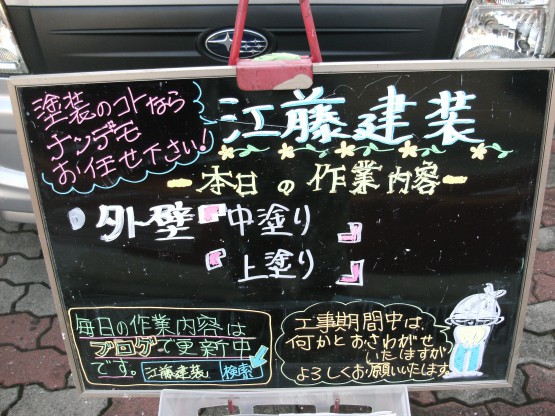 塗装のコトなら
ナンデモ
お任せ下さい!
江藤建装
ー本日の作業内容ー
外壁『中塗り』
『上塗り』
毎日の作業内容は
ブログで更新中
です。江藤建装 検索
工事期間中は、
何かとおさわがせ
いたしますが
よろしくお願いいたします